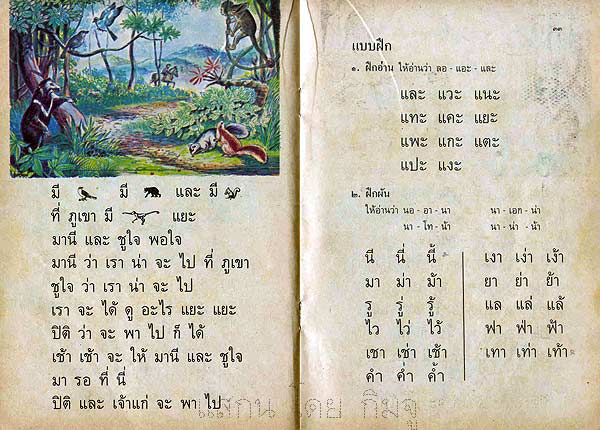 มี มี และ มี
ที่ ภูเขา มี แยะ
มานี และ ชูใจ พอใจ
มานี ว่า เรา น่า จะ ไป ที่ ภูเขา
ชูใจ ว่า เรา น่า จะ ไป
เรา จะ ได้ ดู อะไร แยะ แยะ
ปิติ ว่า จะ พา ไป ก็ ได้
เช้า เช้า จะ ให้ มานี และ ชูใจ
มา รอ ที่ นี่
ปิติ และ เจ้าแก่ จะ พา ไป
๓๓
แบบฝึก
๑. ฝึกอ่าน ให้อ่านว่า ลอ - แอะ - และ
และ แวะ แนะ
แทะ แคะ แยะ
แพะ แกะ แตะ
แปะ แงะ
๒. ฝึกผัน
ให้อ่านว่า นอ - อา - นา นา - เอก - น่า
นา - โท - น้า นา - น่า - น้า
นี นี่ นี้ เงา เง่า เง้า
มา ม่า ม้า ยา ย่า ย้า
รู รู่ รู้ แล แล่ แล้
ไว ไว่ ไว้ ฟา ฟ่า ฟ้า
เชา เช่า เช้า เทา เท่า เท้า
คำ ค่ำ ค้ำ
แสกน โดย กิมจู